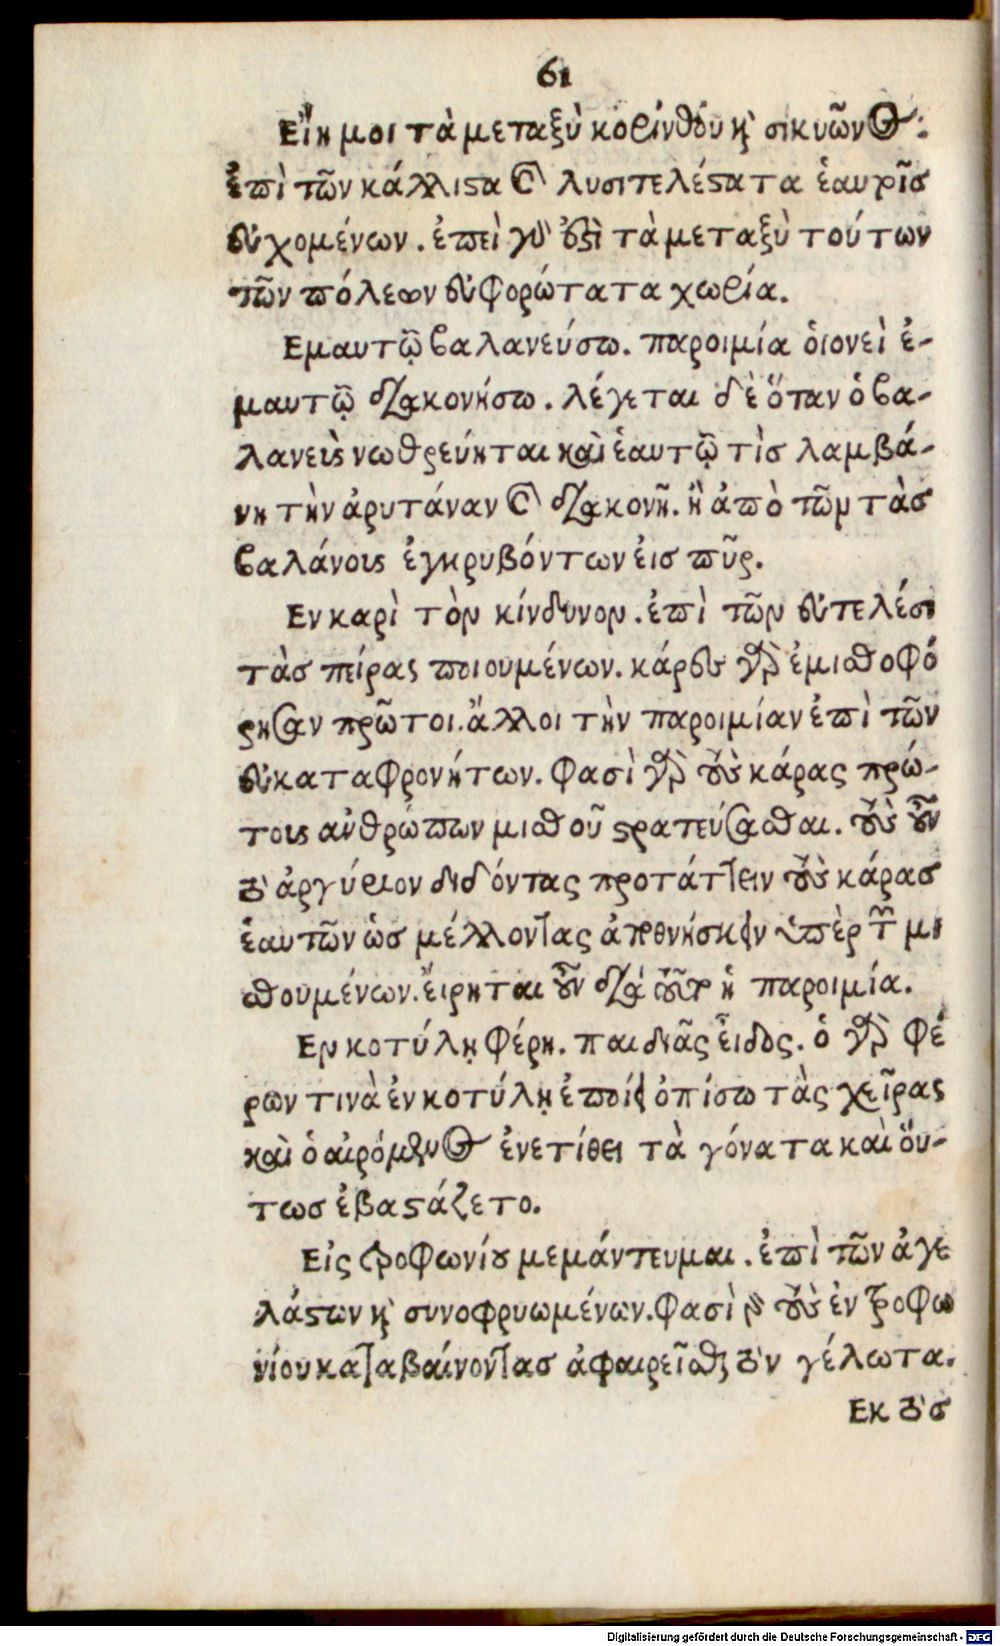 61
Εἴη μοι τὰ μεταξὺ κορίνθου κ̀ σικυῶνος:
ἐπὶ τῶν κάλλιστα καὶ λυσιτελέστατα ἑαυτοῖσ
εὐχομένων. ἐπεὶ τὰ μεταξὺ τούτων
τῶν πόλεων εὐφορώτατα χωρία.
Εμαυτῷ βαλανεύσω. παροιμία ὁιονεὶ ἐ-
μαυτῷ διακονήσω. λέγεται δὲ ὅταν ὁ βα-
λανεὺς νωθρεύηται καὶ ἑαυτῷ τὶσ λαμβά-
νη τὴν ἀρυτάναν καὶ διακονῆ. ἢ ἀπὸ τῶν τὰσ
βαλάνους ἐγκρυβόντων ἐισ πῦρ.
Εν καρὶ τὸν κίνδυνον. ἐπὶ τῶν εὐτελέσι
τὰσ πείρας ποιουμένων. κάρες γὰρ ἐμισθοφό
ρησαν πρῶτοι. ἄλλοι τὴν παροιμίαν ἐπὶ τῶν
εὐκαταφρονήτων. φασὶ γὰρ τοὺς κάρας πρώ-
τους ἀνθρώπων μισθοῦ στρατεύσασθαι. τοὺς οὖν
τὸ ἀργύριον διδόντας προτάττειν τοὺς κάρασ
ἑαυτῶν ὡσ μέλλοντας ἀποθνήσκειν ὑπὲρ τῶν μι
σθουμένων. ἔιρηται οὖν διὰ τοῦτο ἡ παροιμία.
Εν κοτύλῃ φέρη. παιδιᾶς εἶδος. ὁ γὰρ φέ
ρων τινὰ ἐν κοτύλῃ ἐποίει ὀπίσω τὰς χεῖρας
καὶ ὁ αἰρόμενος ἐνετίθει τὰ γόνατα καὶ ὅυ-
τωσ ἐβαστάζετο.
Εἰς τροφωνίου μεμάντευμαι. ἐπὶ τῶν ἀγε
λάστων κ̀ συνοφρυωμένων. φασὶ γὰρ τοὺς ἐν τροφω
νίου καταβαίνοντασ ἀφαιρεῖσθαι τὸν γέλωτα.
Εκ τὸσ
Digitalisierung gefördert durch die Deutsche Forschungsgemeinschaft - DFG